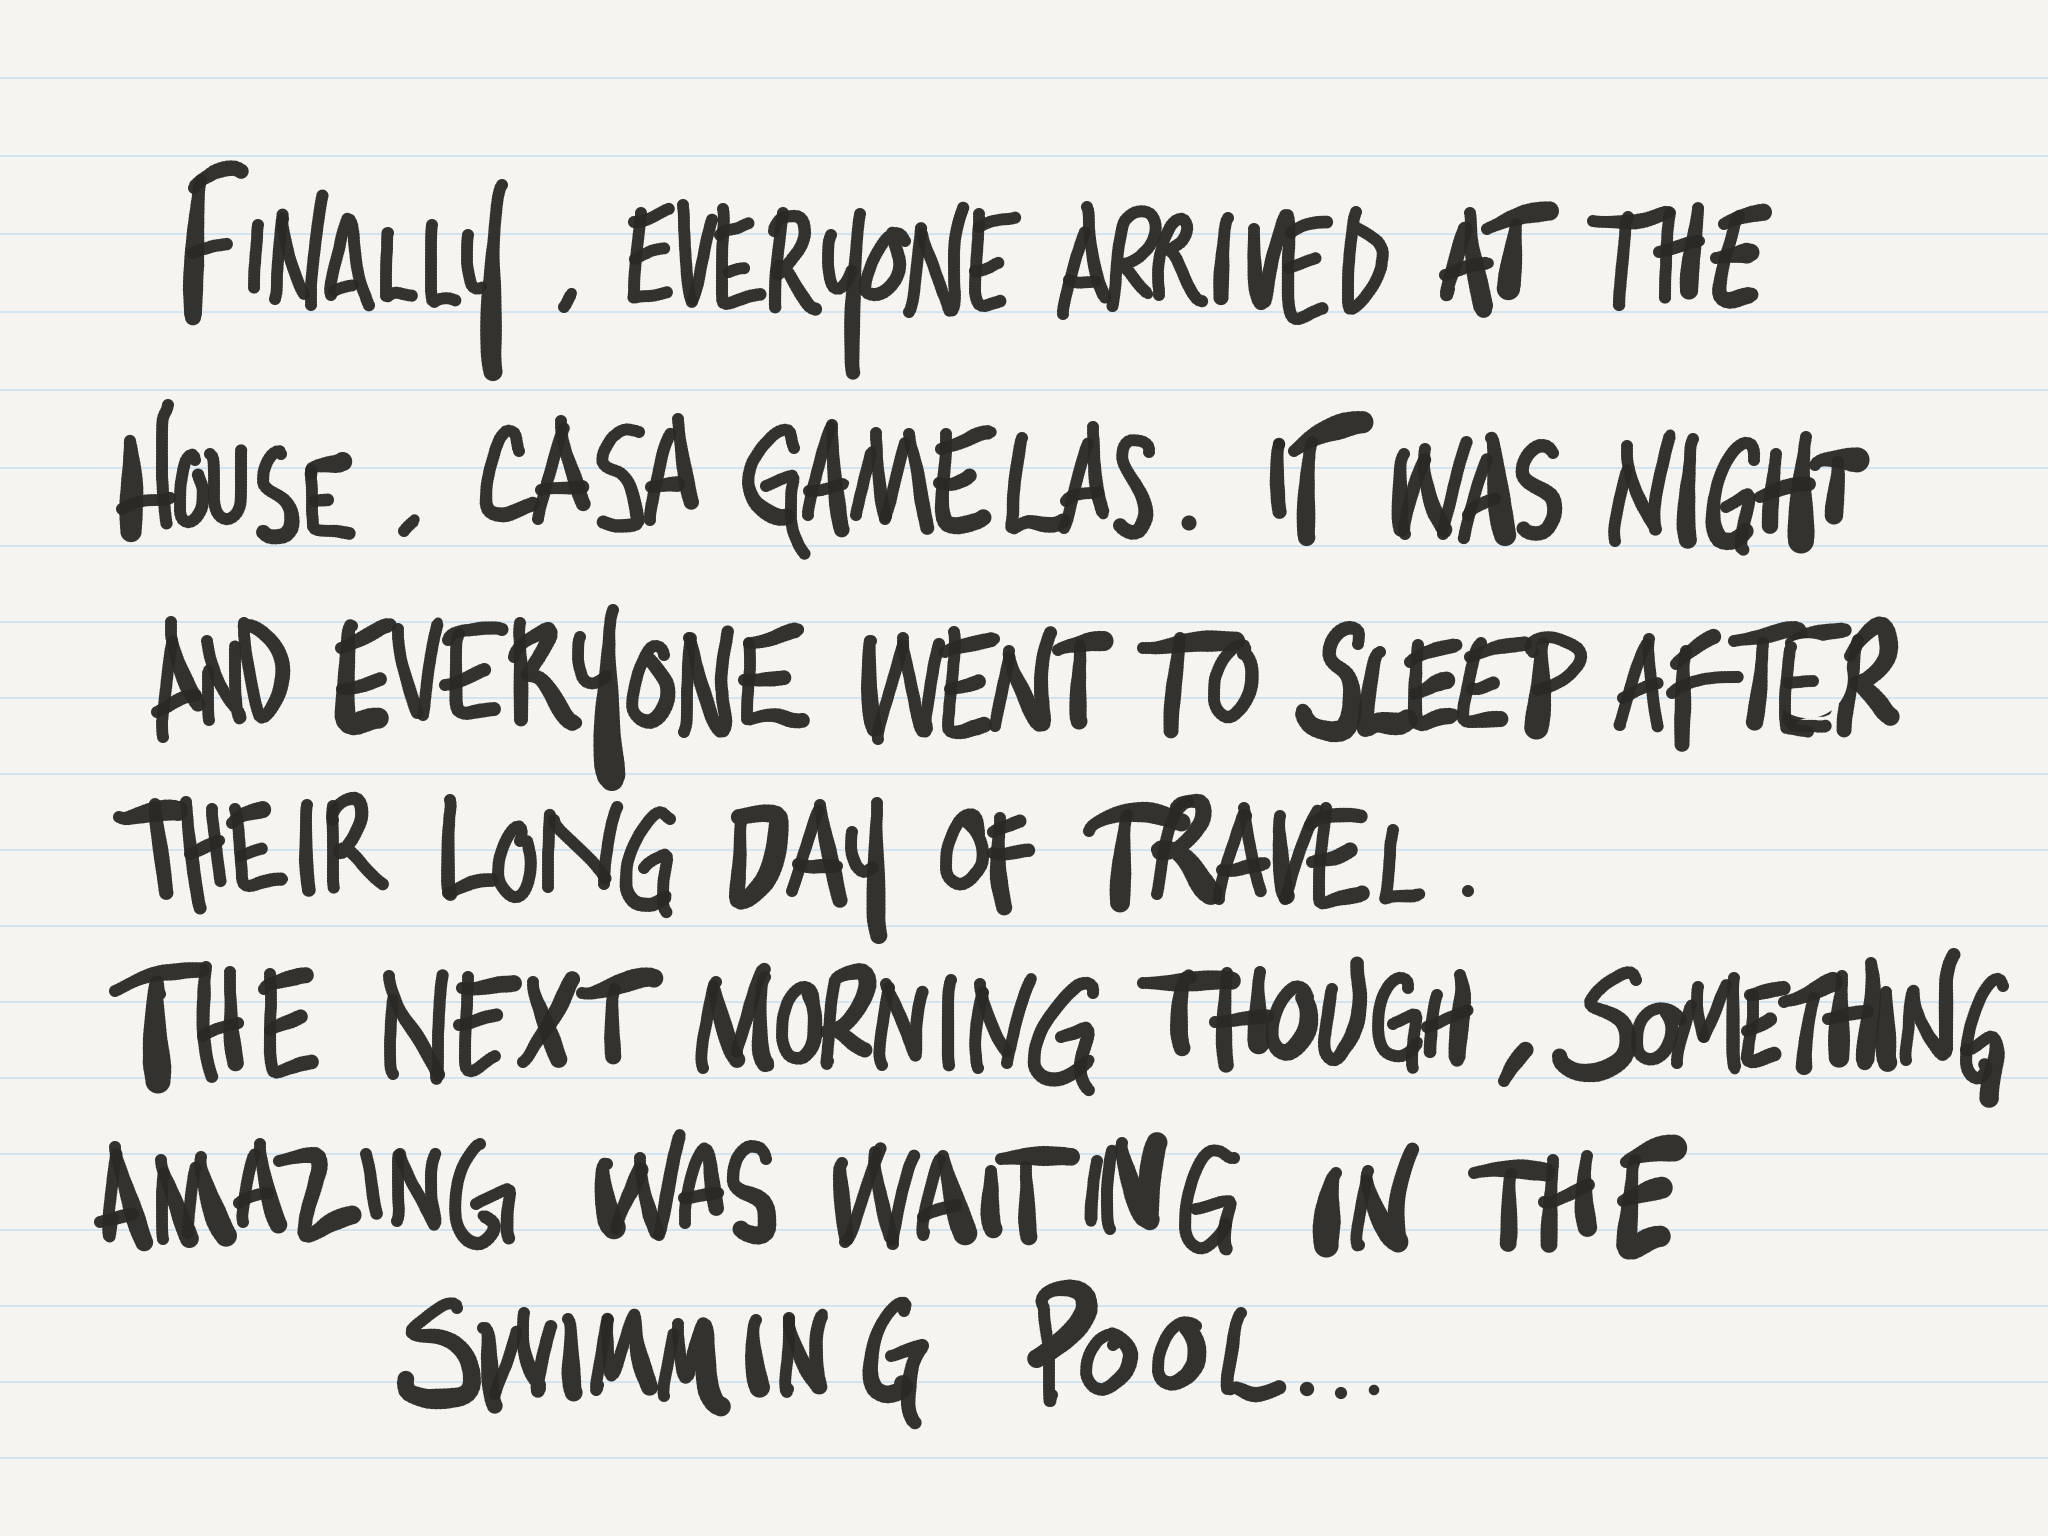 FINALLY, EVERYONE ARRIVED AT THE
HOUSE, CASA GAMELAS. IT WAS NIGHT
AND EVERYONE WENT TO SLEEP AFTER
THEIR LONG DAY OF TRAVEL.
THE NEXT MORNING THOUGH, SOMETHING
AMAZING WAS WAITING IN THE
SWIMMING POOL...